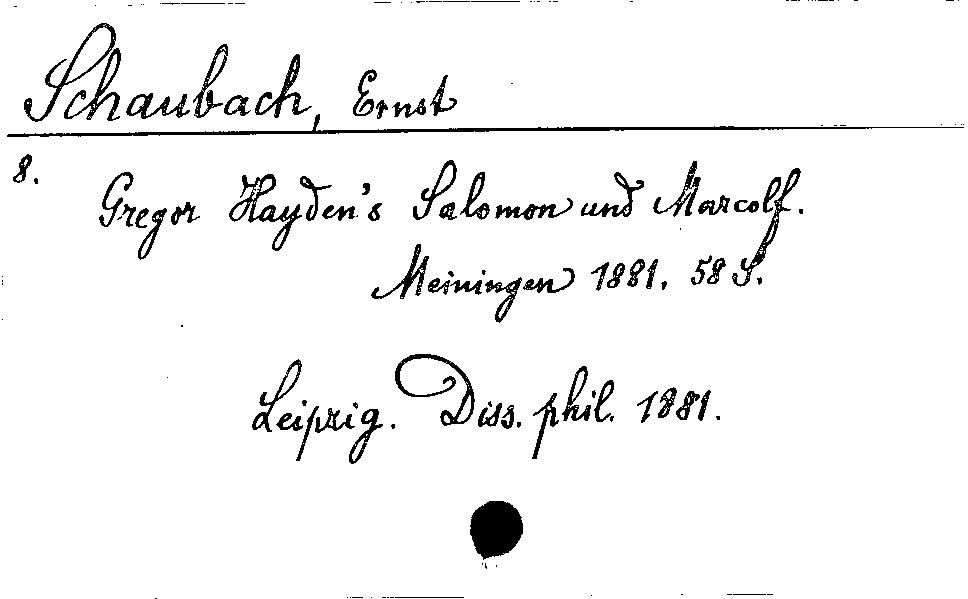 Schaubach, Ernst
8.
Gregor Hayden's Salomon und Marcolf.
Meiningen 1881. 58 S.
Leipzig. Diss. phil. 1881.